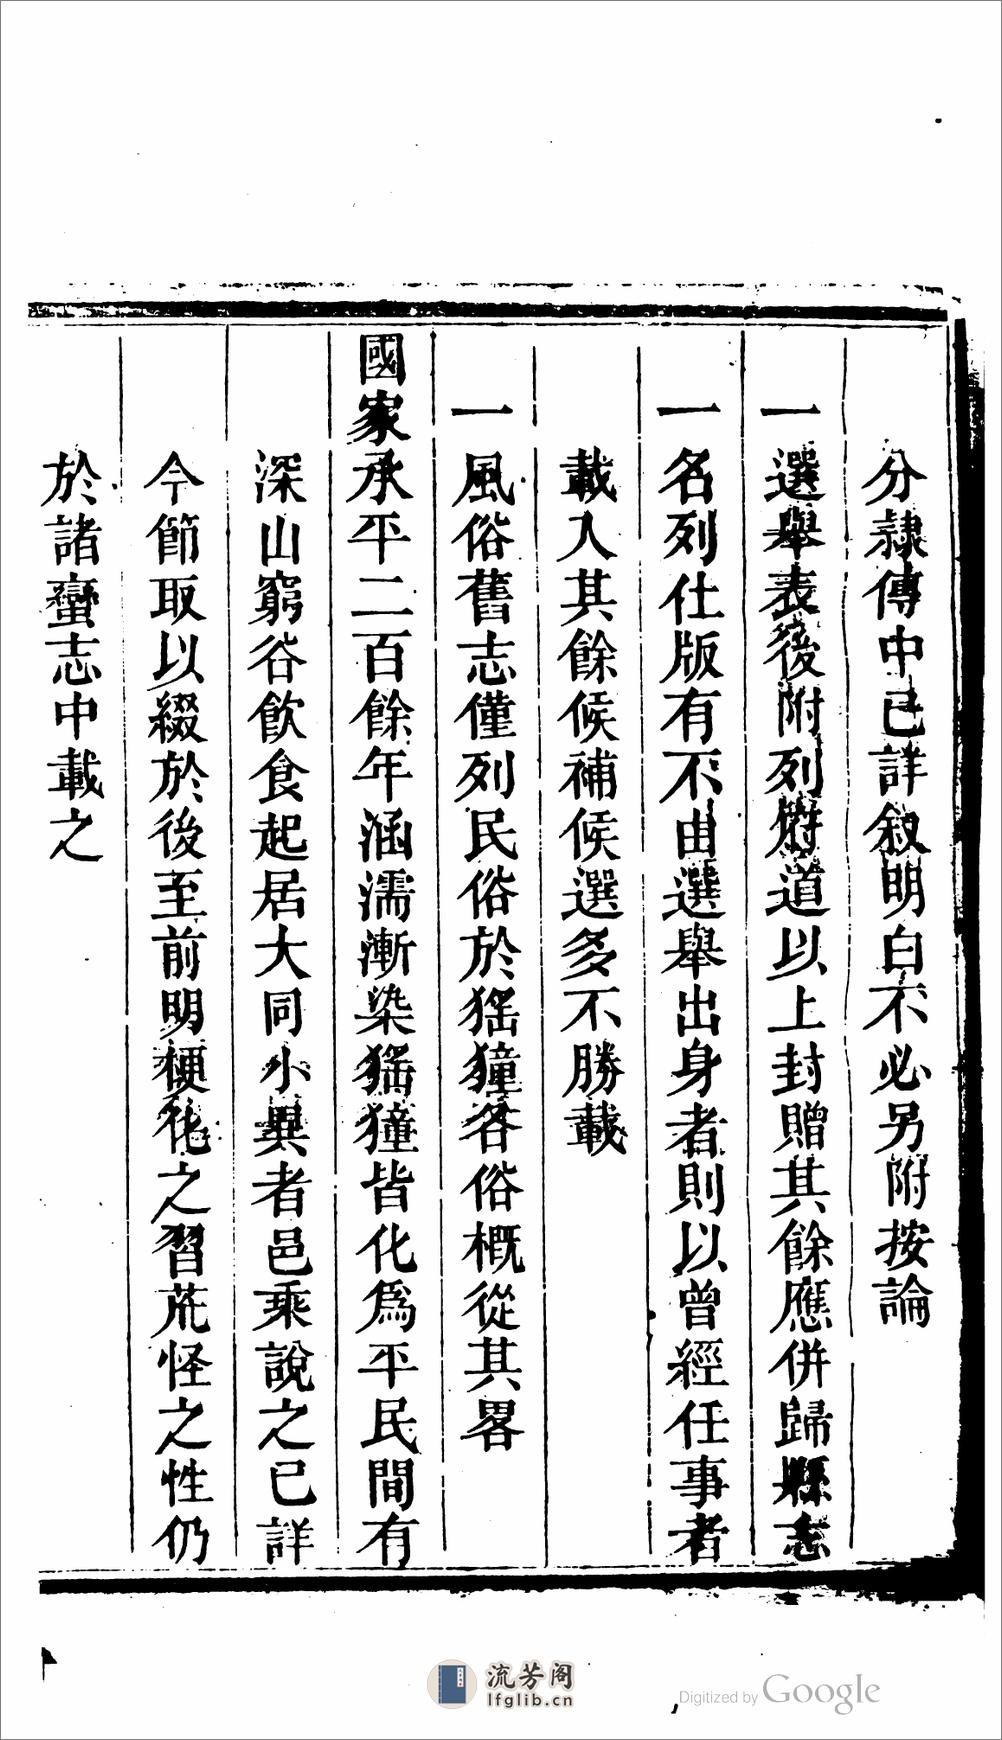 分隸傳中已詳叙明白不必另附按論
一選舉表後附列府道以上封贈其餘應併歸縣志
一名列仕版有不由選舉出身者則以曾經任事者
載入其餘候補候選多不勝載
一風俗舊志僅列民俗於猺獞各俗概從其畧
國家承平二百餘年涵濡漸染猺獞皆化爲平民間有
深山窮谷飲食起居大同小異者邑乘說之已詳
今節取以綴於後至前明梗化之習荒怪之性仍
於諸蠻志中載之
流芳阁
lfglib.cn
Digitized by Google